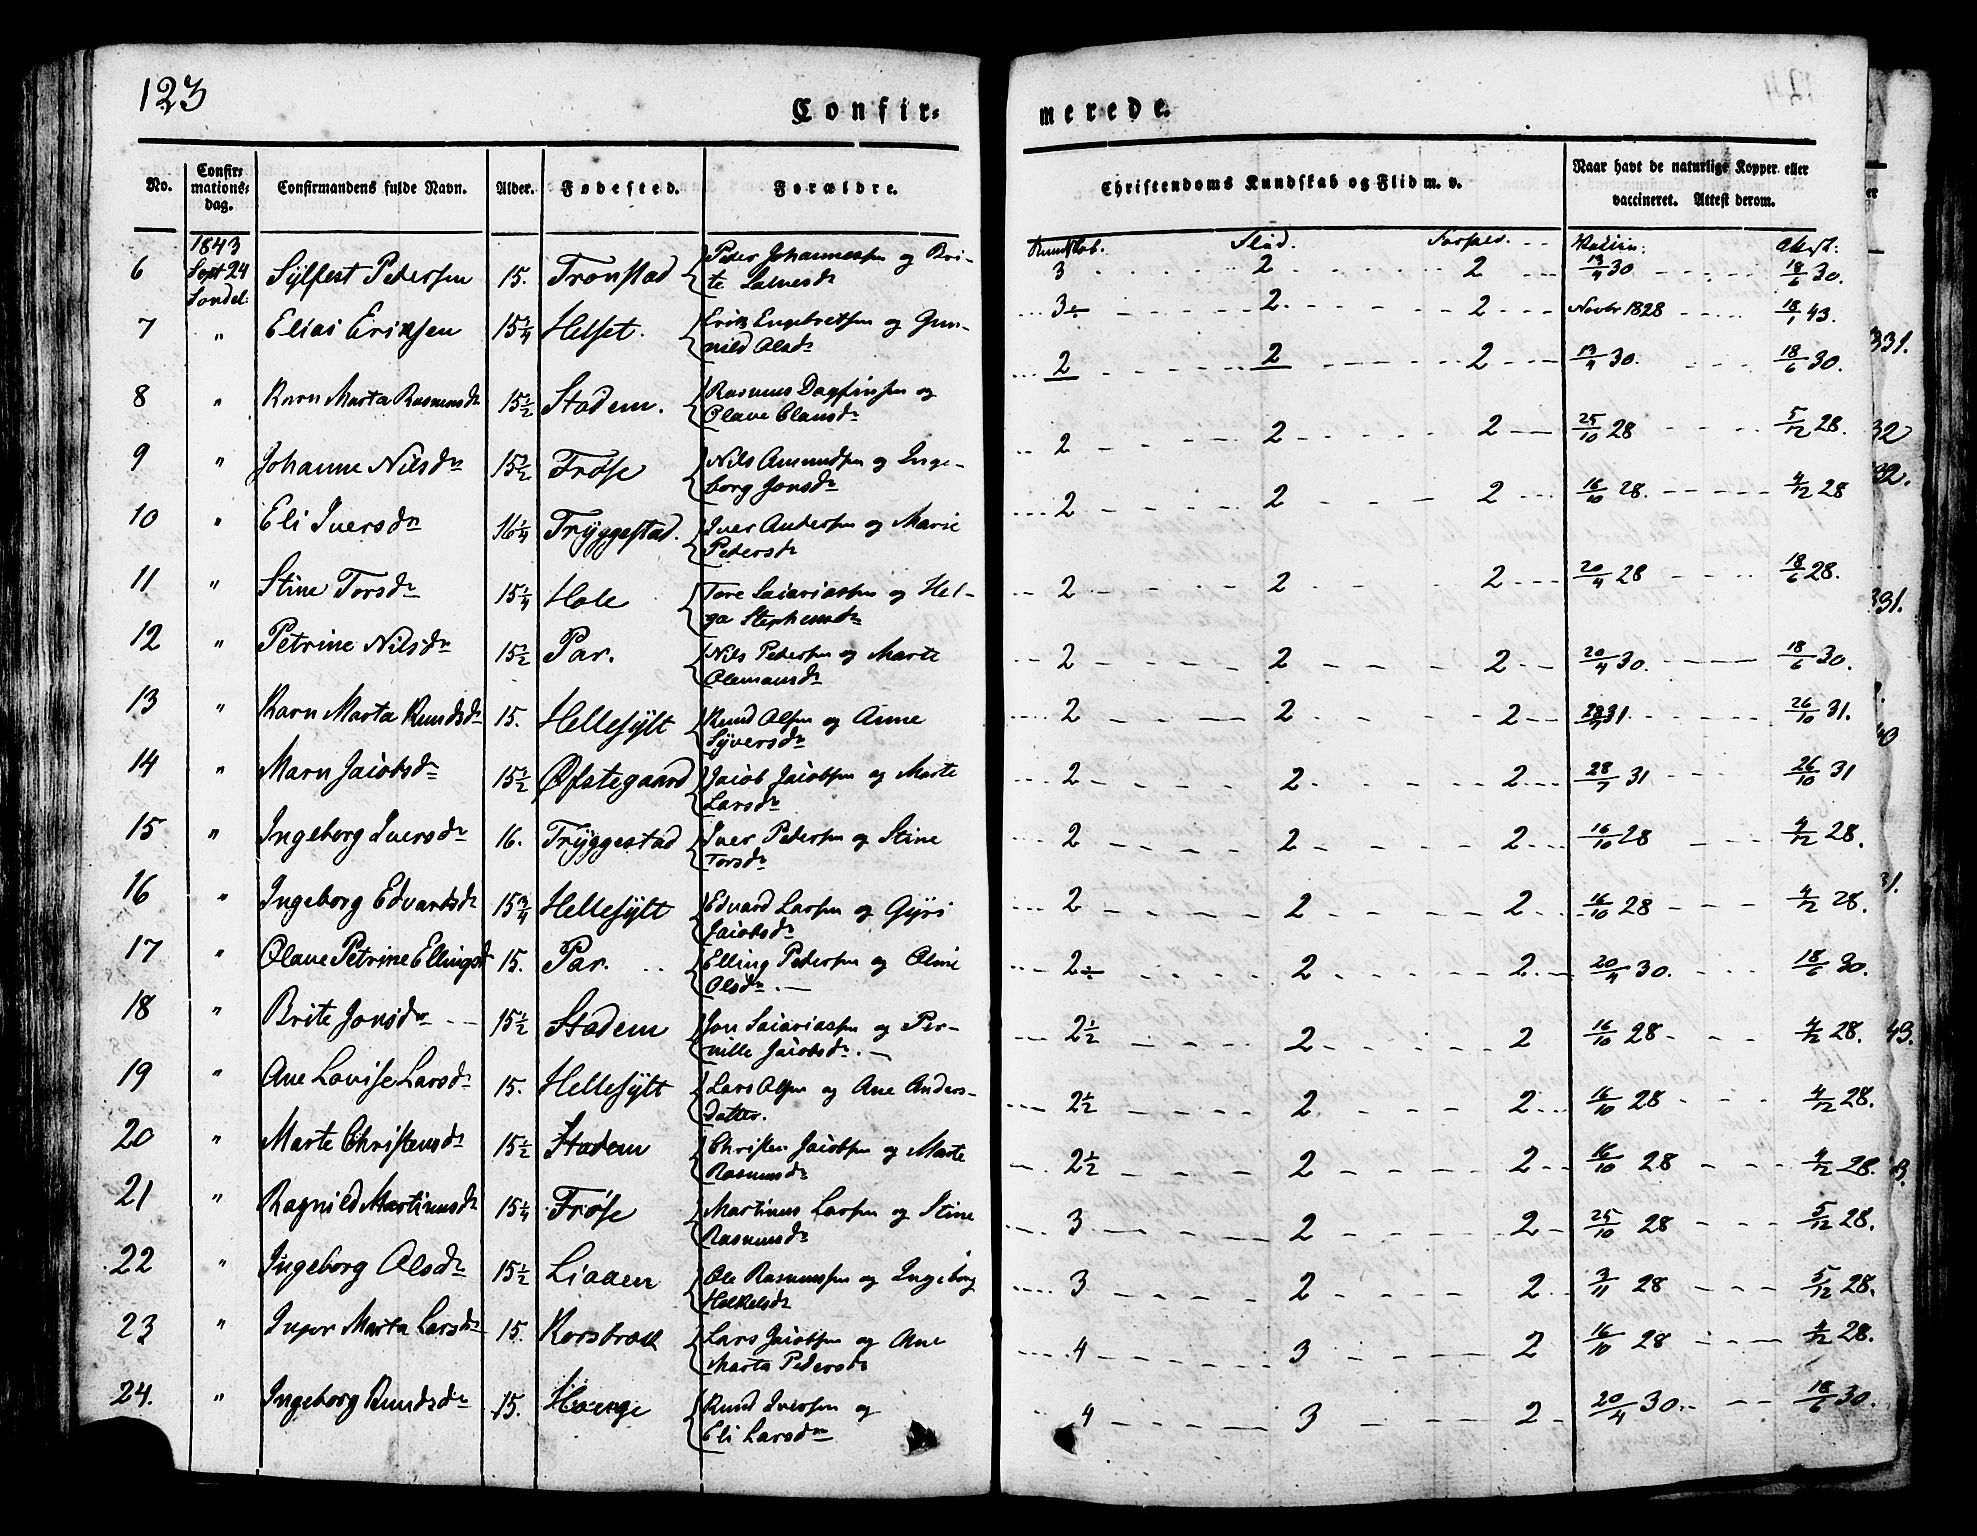 123
Confir-
merede.
No.
Confir-
mations-
dag.
Confirmandens fulde Navn.
Alder.
Fødested.
Forældre.
Christendoms Kundskab og Flid m. v.
Naar havt de naturlige Kopper eller
vaccineret. Attest derom.
Kundskab. Flid. Forhold. Vaccin: Attest:
6 1843 Sept 24 Søndel: Sylfest Petersen 15. Tronstad Peter Johannessen og Bri-
te 3 2 2 13/4 30 18/6 30.
7 " Elias Eriksen 15 3/4 Helset. Erik Engebretsen og Gun-
nild Olsdr 3÷ 2. 2 Novbr 1828 18/1 43.
8 " Karn Marta Rasmusdr 15 1/2 Stadem. Rasmus Dagfinsen og
Olave Clausdr 2 2 2 13/4 30. 18/6 30.
9 " Johanne Nilsdr 15 1/2 Frøse Nils Amundsen og Inge-
borg Jonsdr 2 2 2 25/10 28 5/12 28.
10 " Eli Iversdr 16 1/4 Tryggestad. Iver Andersen og Marie
Petersdr 2 2 2 16/10 28. 4/12 28
11 " Stine Torsdr 15 1/4 Hole Tore Saiariassen og Hel-
ga Stephensdr 2 2 2 20/4 28 18/6 28.
12 " Petrine Nilsdr 15 1/2 Par. Nils Petersen og Marte
Olemansdr 2 2 2 20/4 30 18/6 30.
13 " Karn Marta Knudsdr 15. Hellesylt Knud Olsen og Anne
Syversdr 2 2 2 28/7 31. 26/10 31.
14 " Marn Jacobsdr 15 1/2 Øfstegaard Jacob Jacobsen og Marte
Larsdr 2 2. 2 28/7 31 26/10 31
15 " Ingeborg Iversdr 16. Tryggestad Iver Petersen og Stine
Torsdr 2 2 2 16/10 28 4/12 28.
16 " Ingeborg Edvardsdr 15 3/4 Hellesylt Edvard Larsen og Gyri
Jacobsdr 2 2 2 16/10 28 4/12 28.
17 " Olave Petrine Ellingsdr 15. Par. Elling Petersen og Oline
Olsdr. 2÷ 2 2 20/4 30. 18/6 30.
18 " Brite Jonsdr 15 1/2 Stadem Jon Saiariassen og Per-
nille Jacobsdr. 2 1/2 2 2 16/10 28 4/12 28.
19 " Ane Lovise Larsdr 15. Hellesylt Lars Olsen og Ane Anders-
datter. 2 1/2 2 2 16/10 28 4/12 28.
20 " Marte Christensdr 15 1/2 Stadem Christen Jacobsen og Marte
Rasmusdr 2 1/2 2 2 16/10 28 4/12 28.
21 " Ragnild Martinusdr 15 1/4 Frøse Martinus Larsen og Stine
Rasmusdr 3 2 2 25/10 28 5/12 28.
22 " Ingeborg Olsdr 15 1/2 Liaaen Ole Rasmussen og Ingeborg
3 2 2 3/11 28 5/12 28.
23 " Marta Larsdr 15. Korsbræk Lars Jacobsen og Ane
Marta Petersdr 4 3 2 16/10 28 4/12 28.
24. " Ingeborg Knudsdr 15. Knud Iversen og
Eli Larsdr 4 3 2 20/4 30. 18/6 30.